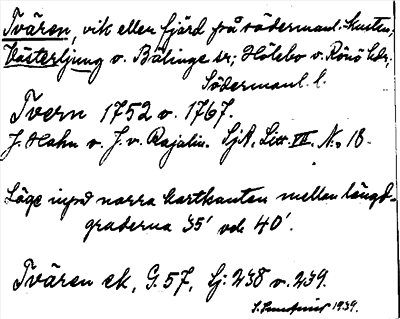 Tvären, vik eller fjärd på södermanl. kusten,
Västerljung o. Bälinge sr; Hölebo o. Rönö hdr,
Södermanl. l.
Tvern 1752 o. 1767.
J. Hahn o. J. v. Rajalin. SjA, Litt. VII. No 18.
Läge invid norra kartkanten mellan längd-
graderna 35' och 40'.
Tvären ek, G. 57, Lj: 238 o. 239.
1939.